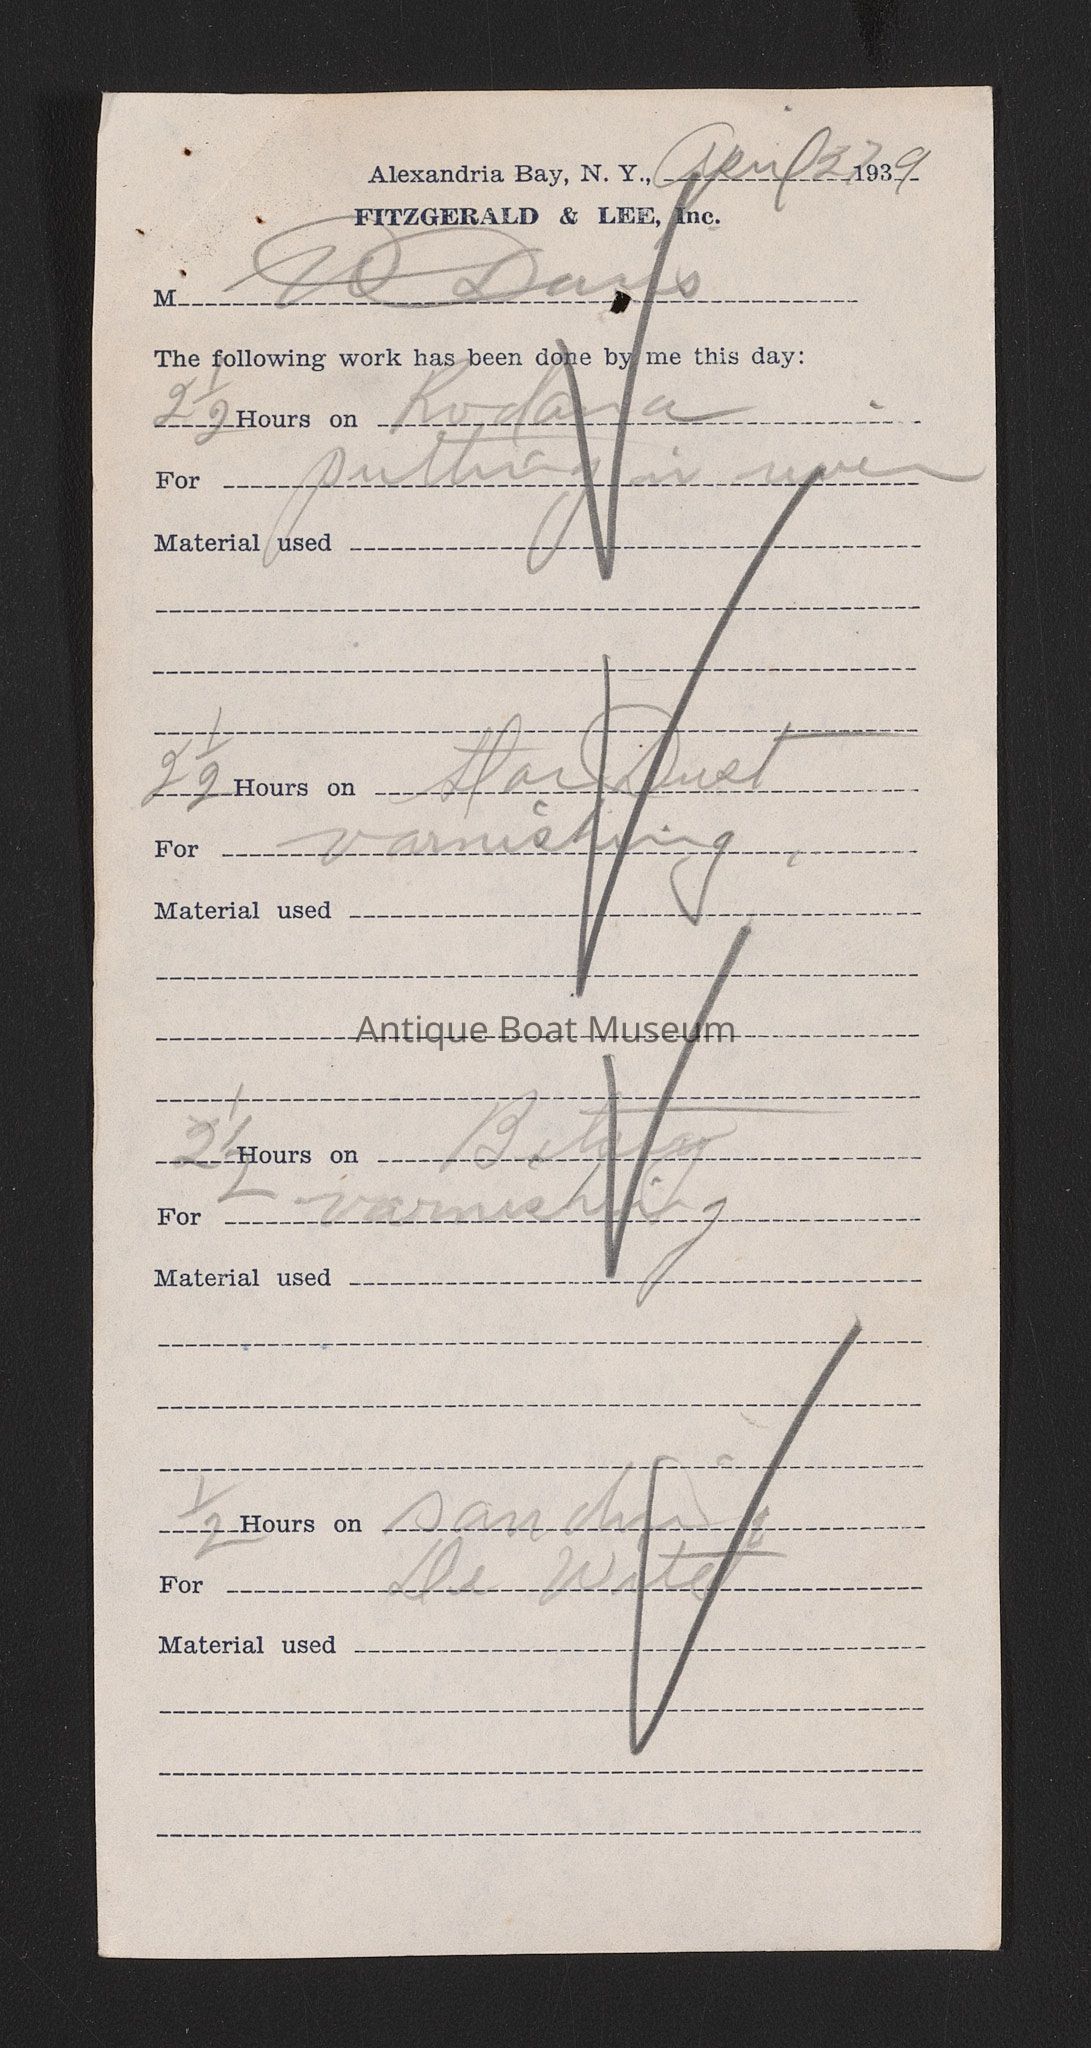 Alexandria Bay, N. Y., April 27 1939
FITZGERALD & LEE, Inc.
M Davis
The following work has been done by me this day:
2 1/2 Hours on Rodana
For putting in river
Material used
2 1/2 Hours on Star Dust
For varnishing
Material used
Antique Boat Museum
2 1/2 Hours on Betsey
For varnishing
Material used
1/2 Hours on sanding
For De Witt
Material used